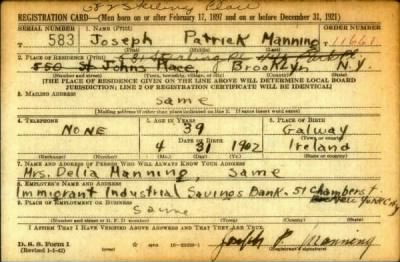 REGISTRATION CARD—(Men born on or after February 17, 1897 and on or before December 31, 1921)
SERIAL NUMBER 1. NAME (Print) ORDER NUMBER
583 Joseph Patrick Manning 11661
(First) (Middle) (Last)
2. PLACE OF RESIDENCE (Print)
550 St Johns Place, Brooklyn N.Y.
(Number and street) (Town, township, village, or city) (County) (State)
[THE PLACE OF RESIDENCE GIVEN ON THE LINE ABOVE WILL DETERMINE LOCAL BOARD
JURISDICTION; LINE 2 OF REGISTRATION CERTIFICATE WILL BE IDENTICAL]
3. MAILING ADDRESS
Same
[Mailing address if other than place indicated on line 2. If same insert word same]
4. TELEPHONE 5. AGE IN YEARS 6. PLACE OF BIRTH
None 39 Galway
DATE OF BIRTH (Town or county)
4 31 1902 Ireland
(Exchange) (Number) (Mo.) (Day) (Yr.) (State or country)
7. NAME AND ADDRESS OF PERSON WHO WILL ALWAYS KNOW YOUR ADDRESS
Mrs. Delia Manning Same
8. EMPLOYER'S NAME AND ADDRESS
Immigrant Industrial Savings Bank. 51 Chambers St
New York City
9. PLACE OF EMPLOYMENT OR BUSINESS
Same
(Number and street or R. F. D. number) (Town) (County) (State)
I AFFIRM THAT I HAVE VERIFIED ABOVE ANSWERS AND THAT THEY ARE TRUE.
D. S. S. Form 1
(Revised 1-1-42)
Joseph P. Manning
(Registrant's signature)